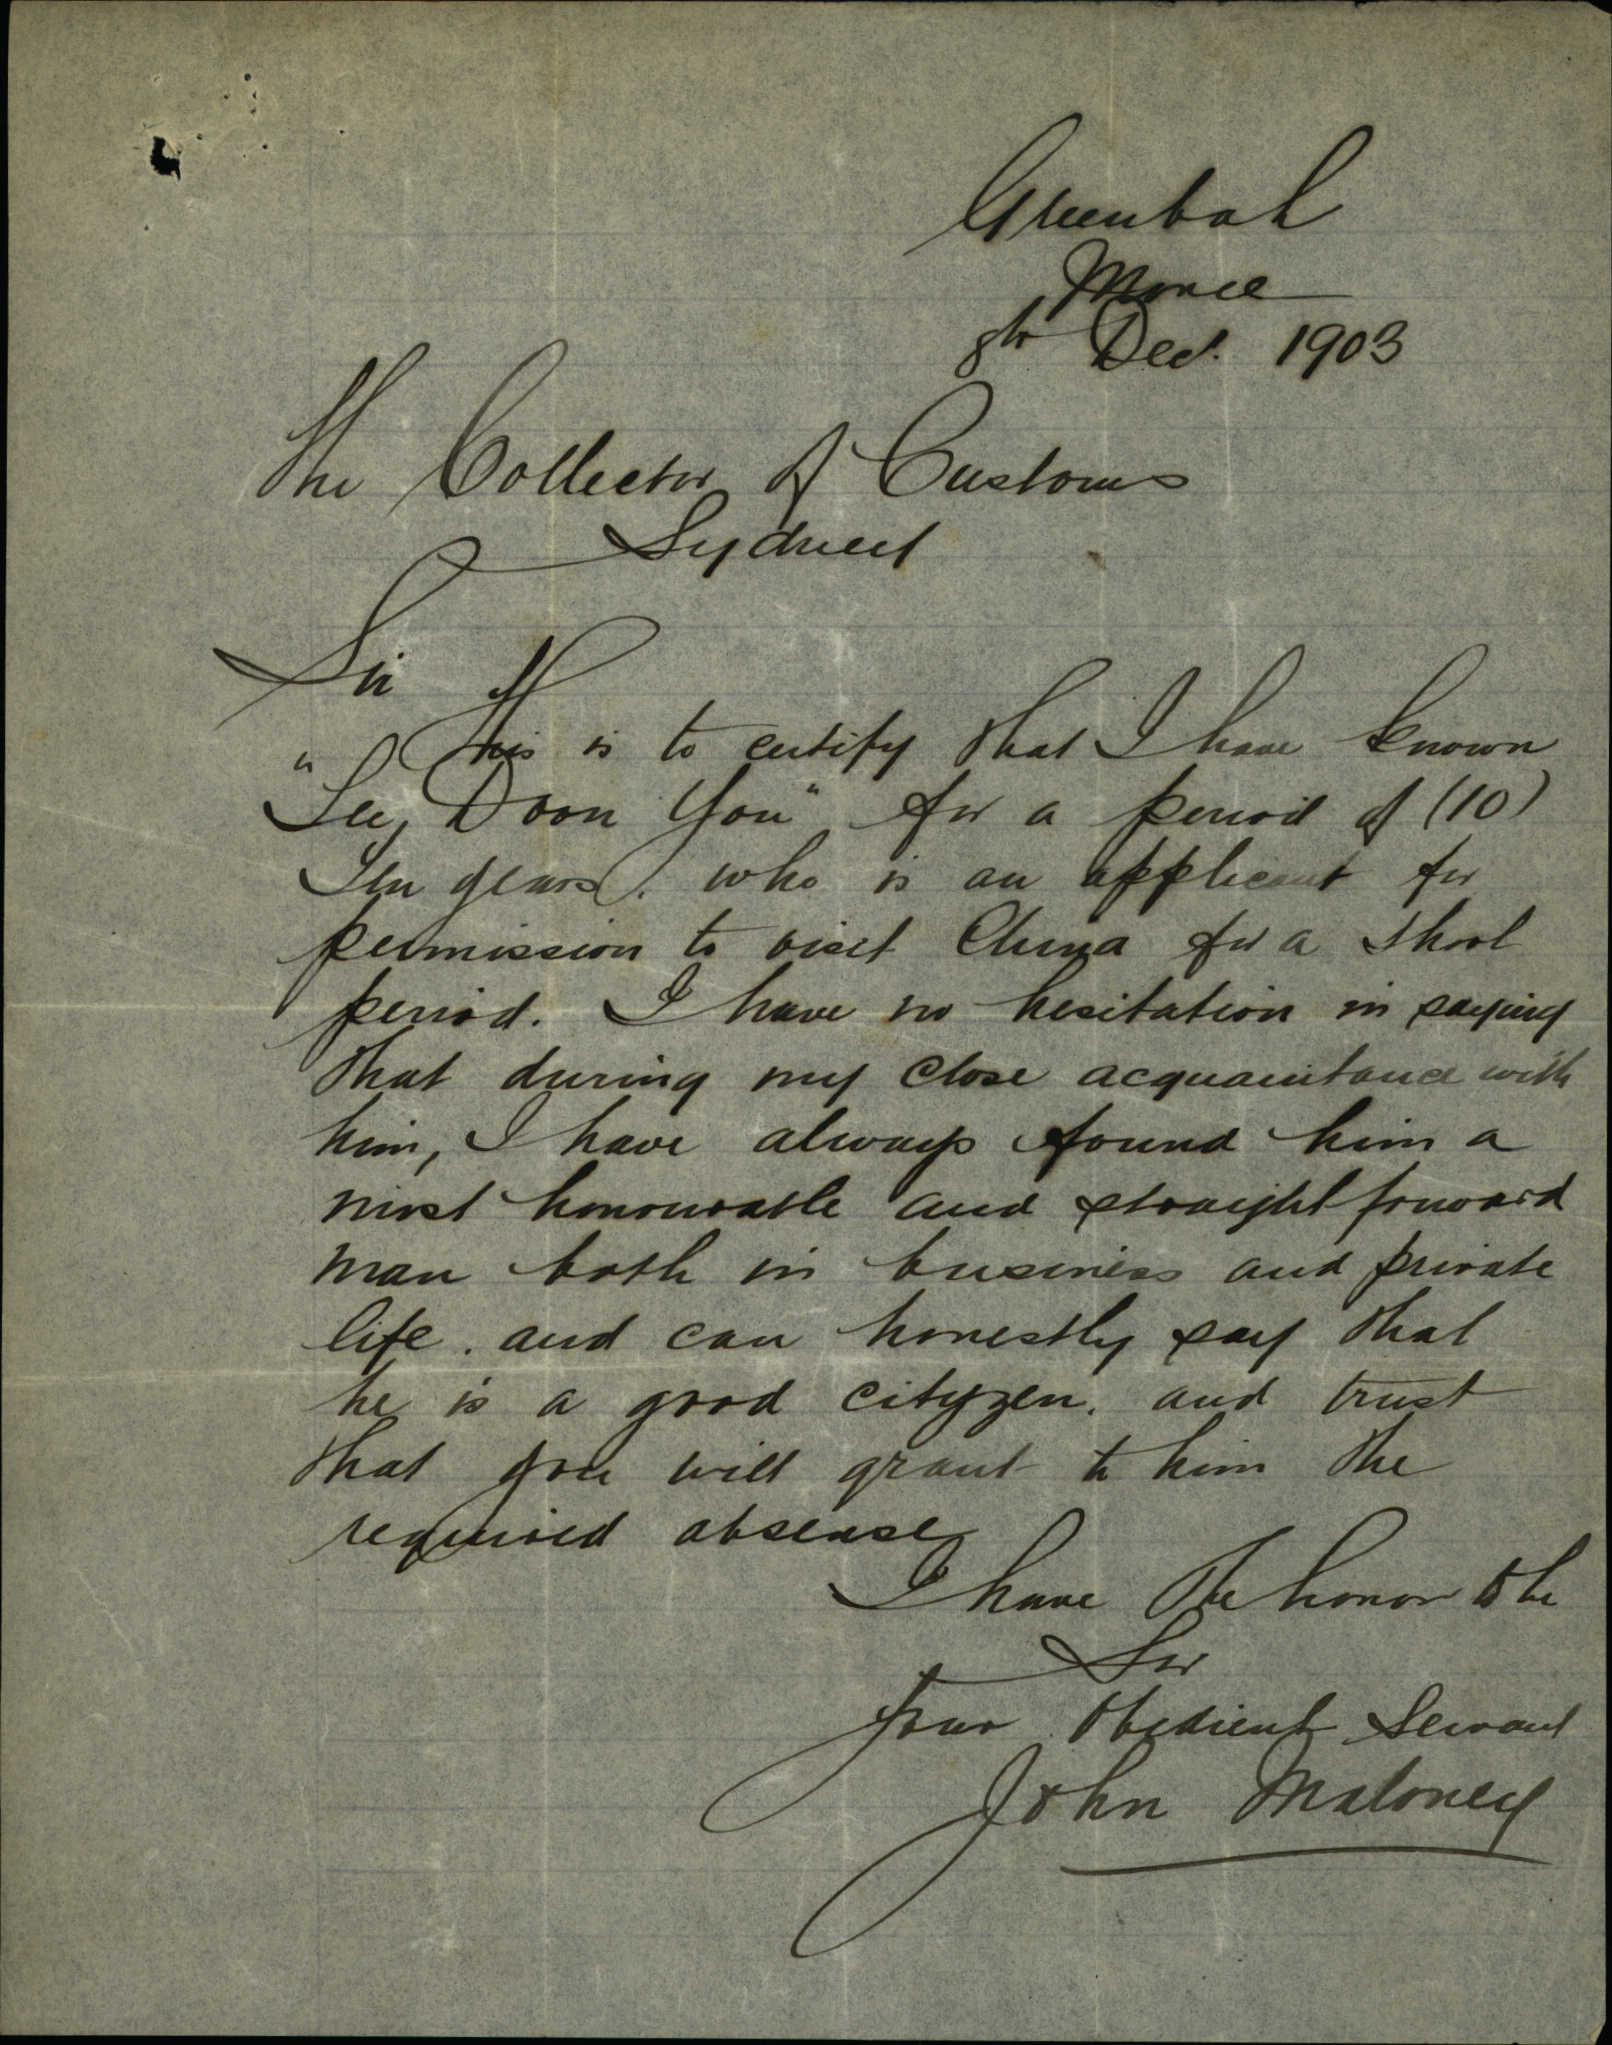 Greenbah
Moree
8th Dec. 1903
The Collector of Customs
Sydney
Sir
This is to certify that I have known
"See Doon You" for a period of (10)
Ten years. who is an applicant for
permission to visit China for a short
period. I have no hesitation in saying
that during my close acquaintance with
him, I have always found him a
most honourable and straightforward
man both in business and private
life. and can honestly say that
he is a good cityzen. and trust
that you will grant to him the
required absense
I have the honor to be
Sir
Your Obedient Servant
John Maloney